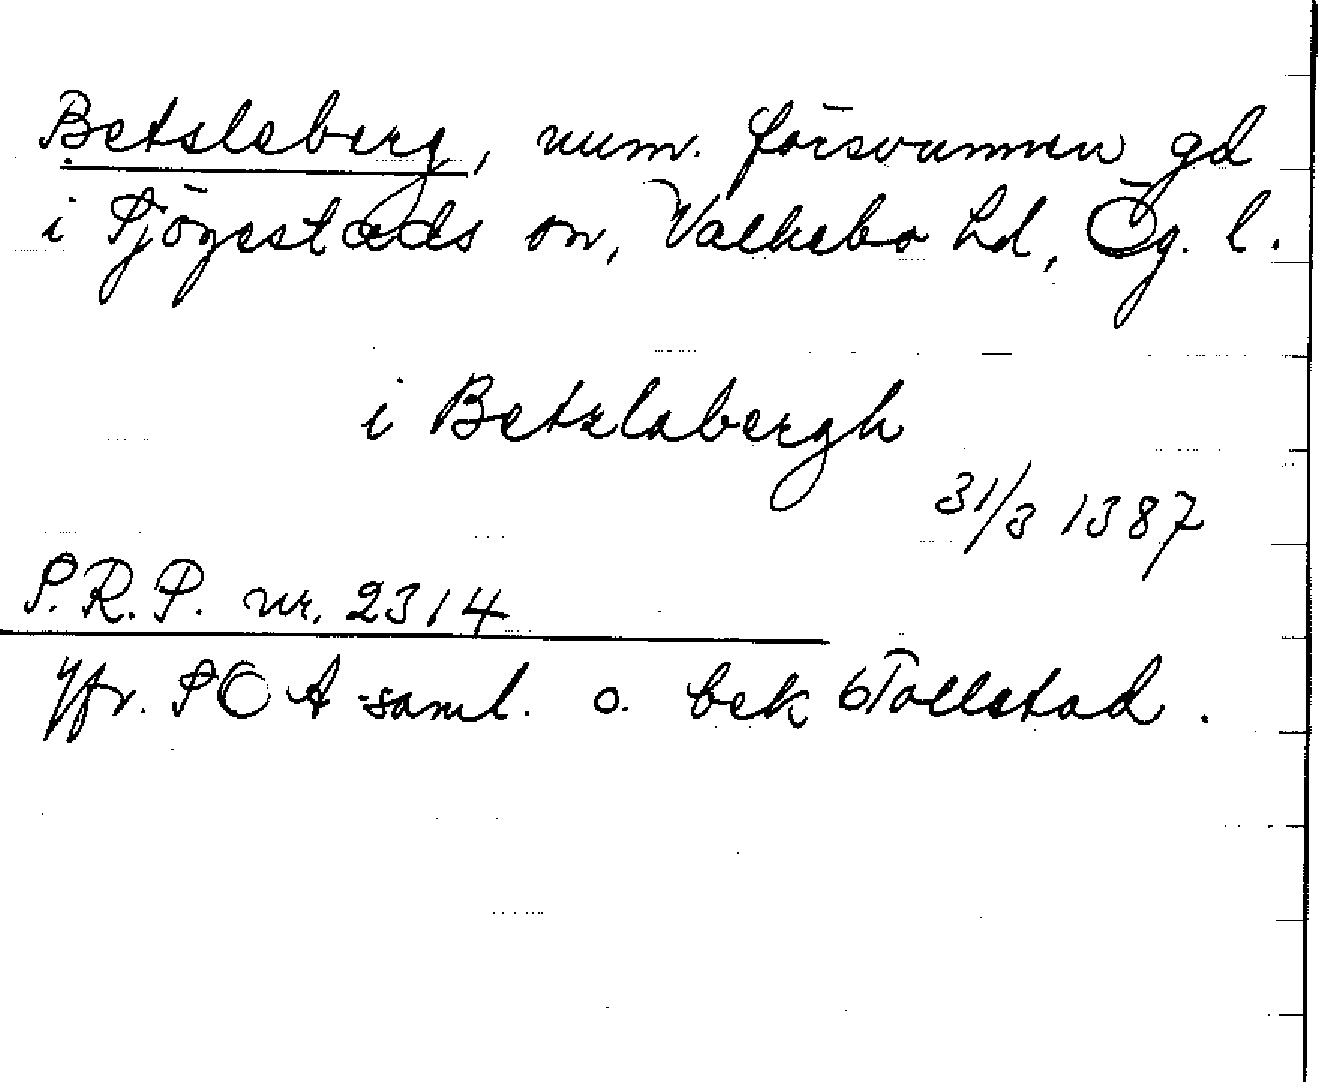 Betsleberg, num. försvunnen gd
i Sjögestads sn, Valkebo hd, Ög. l.
i Betzlabergh
31/3 1387
S.R.P. nr. 2314
Jfr. SOA-saml. o. bek Tollstad.